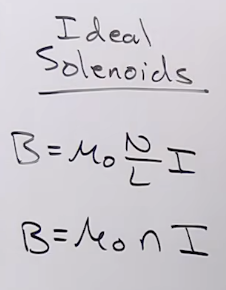 Ideal
Solenoids
B = μ₀ N/L I
B = μ₀ n I